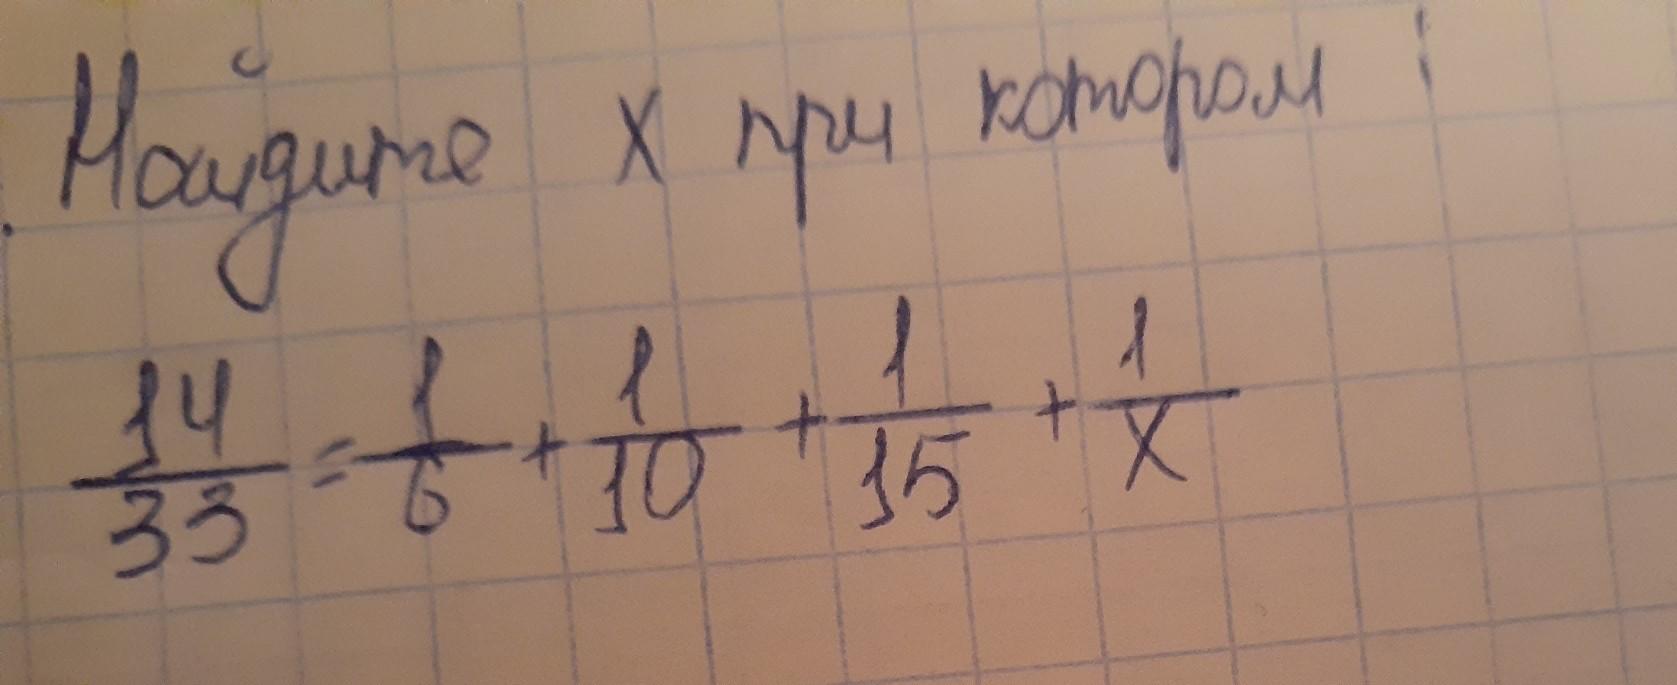 Найдите x при котором :
14/33 = 1/6 + 1/10 + 1/15 + 1/x